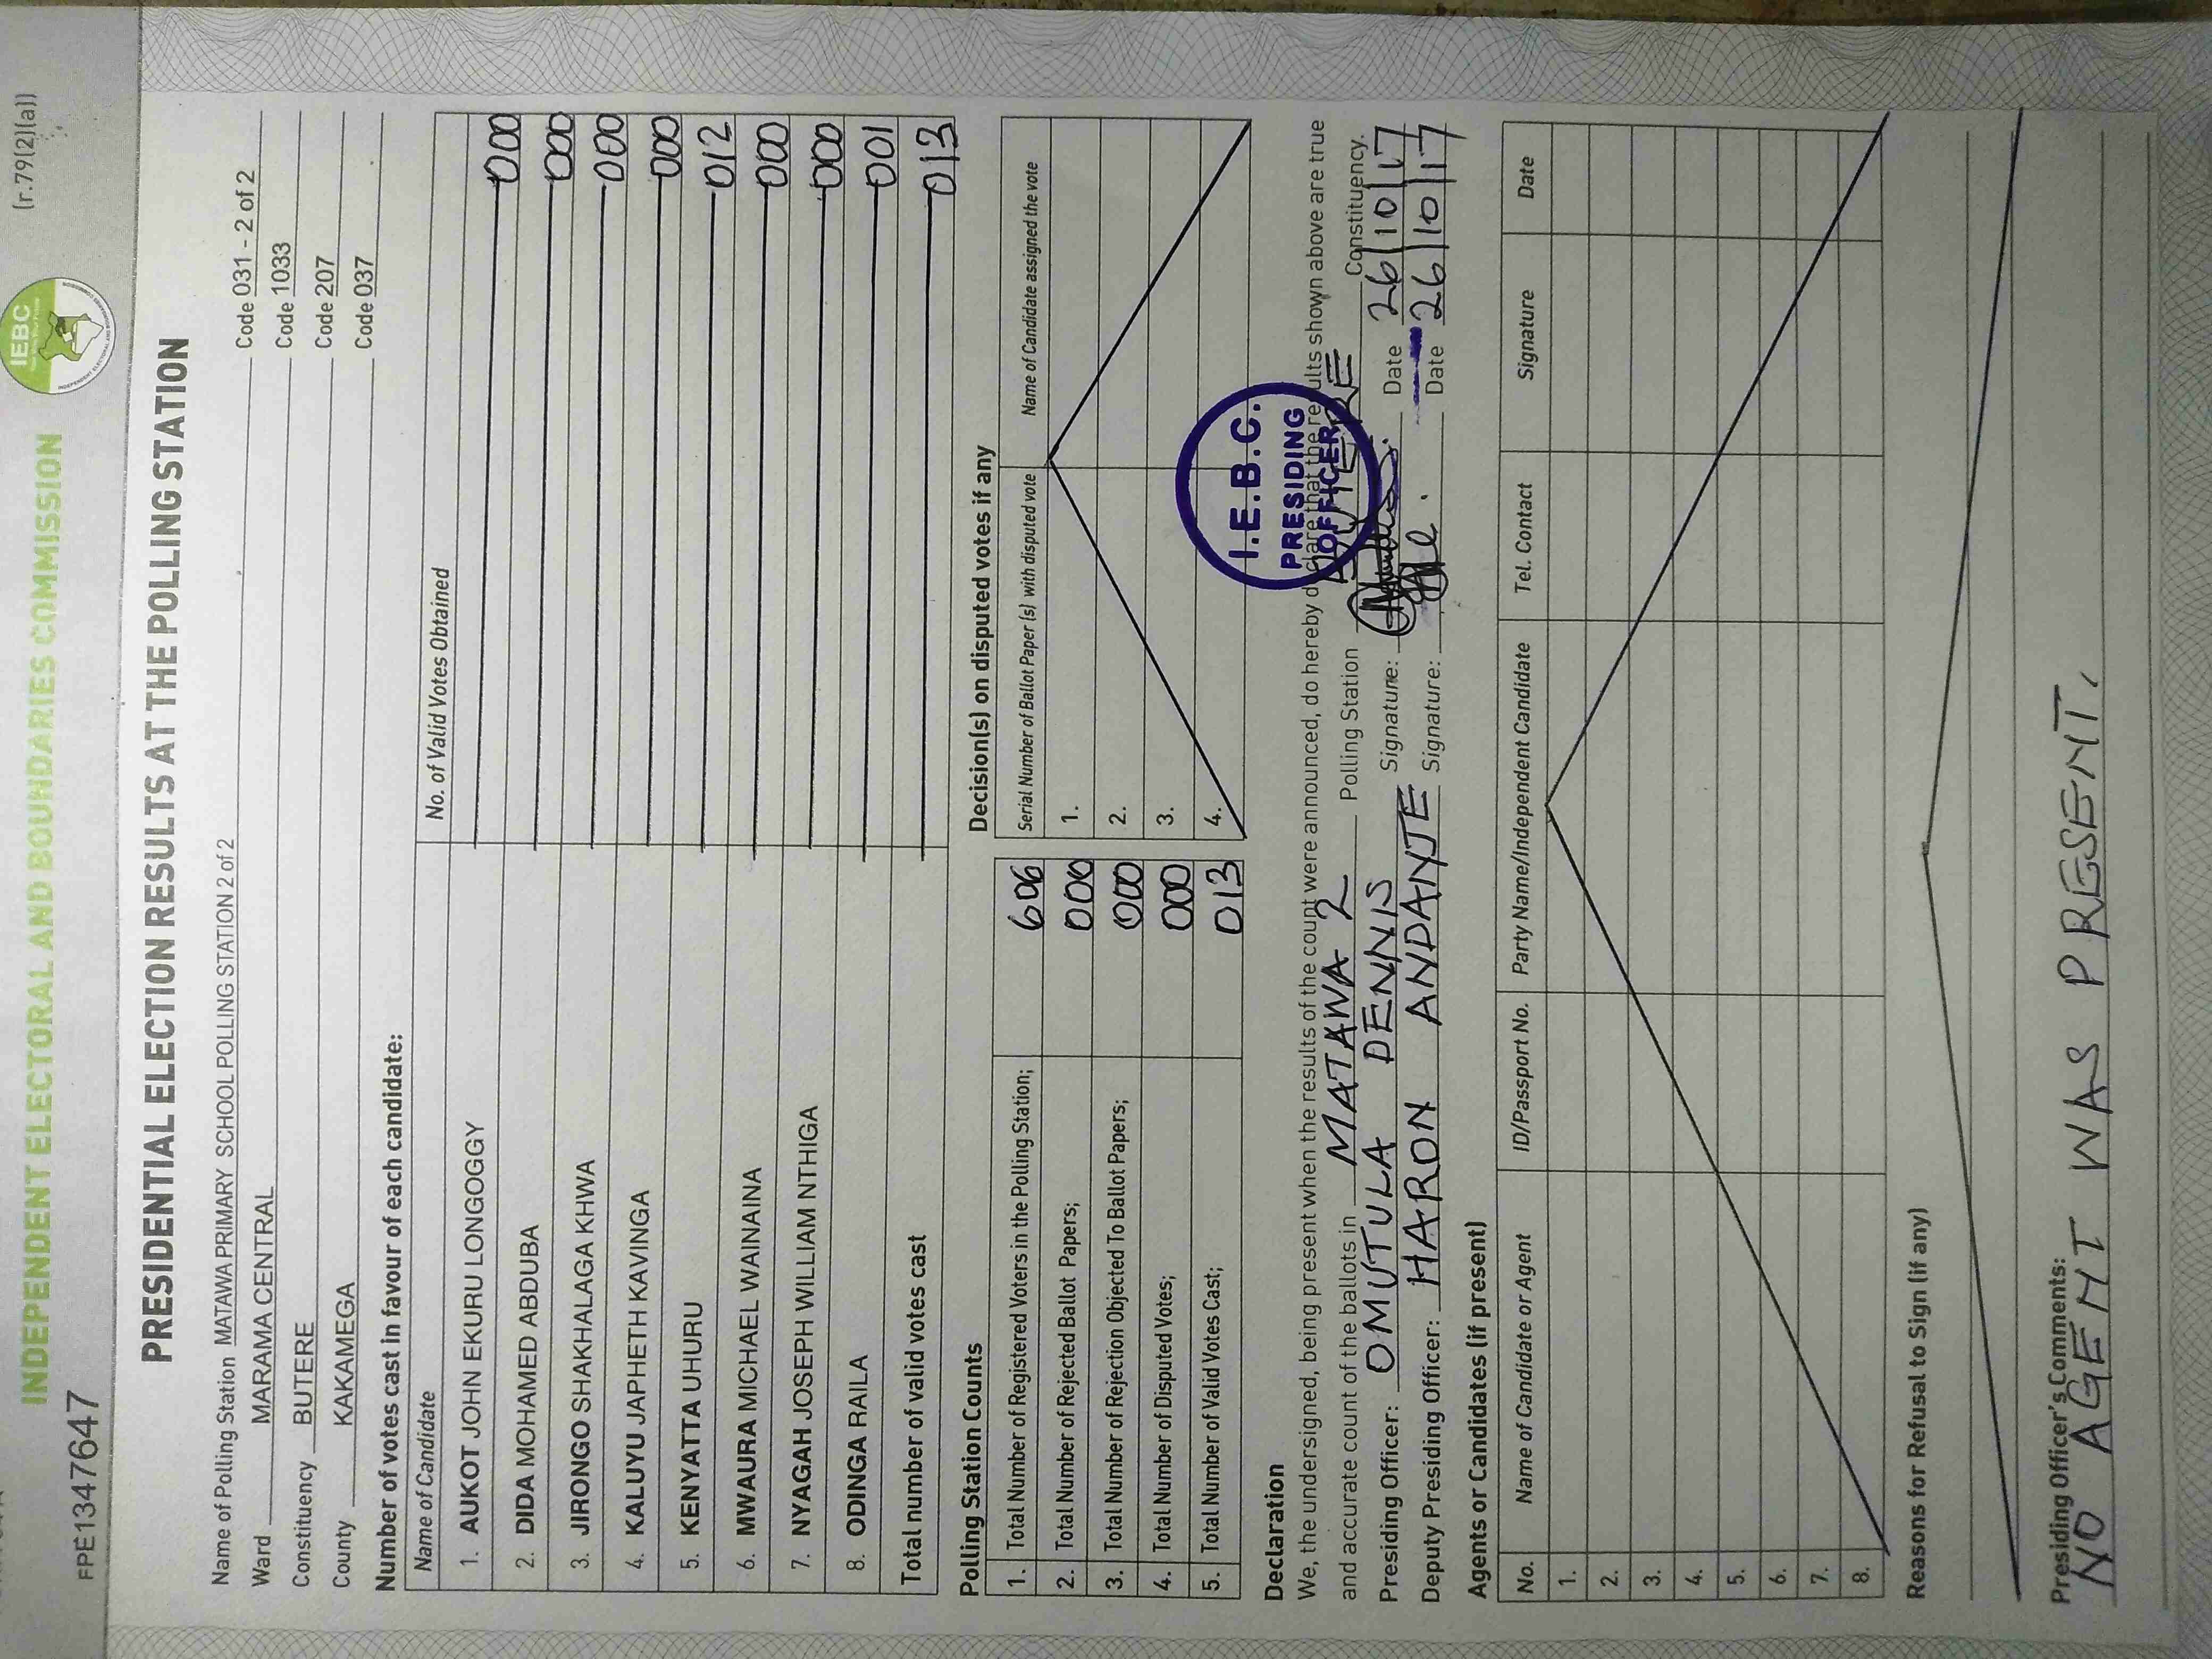 INDEPENDENT ELECTORAL AND BOUNDARIES COMMISSION
IEBC
(r.79(2)(a))
FPE1347647
PRESIDENTIAL ELECTION RESULTS AT THE POLLING STATION
Name of Polling Station MATAWA PRIMARY SCHOOL POLLING STATION 2 of 2 Code 031 - 2 of 2
Ward MARAMA CENTRAL Code 1033
Constituency BUTERE Code 207
County KAKAMEGA Code 037
Number of votes cast in favour of each candidate:
Name of Candidate No. of Valid Votes Obtained
1. AUKOT JOHN EKURU LONGOGGY 000
2. DIDA MOHAMED ABDUBA 000
3. JIRONGO SHAKHALAGA KHWA 000
4. KALUYU JAPHETH KAVINGA 000
5. KENYATTA UHURU 012
6. MWAURA MICHAEL WAINAINA 000
7. NYAGAH JOSEPH WILLIAM NTHIGA 000
8. ODINGA RAILA 001
Total number of valid votes cast 013
Polling Station Counts
1. Total Number of Registered Voters in the Polling Station; 606
2. Total Number of Rejected Ballot Papers; 000
3. Total Number of Rejection Objected To Ballot Papers; 000
4. Total Number of Disputed Votes; 000
5. Total Number of Valid Votes Cast; 013
Decision(s) on disputed votes if any
Serial Number of Ballot Paper (s) with disputed vote Name of Candidate assigned the vote
1.
2.
3.
4.
I.E.B.C.
PRESIDING
OFFICER
Declaration
We, the undersigned, being present when the results of the count were announced, do hereby declare that the results shown above are true
and accurate count of the ballots in MATAWA 2 Polling Station BUTERE Constituency.
Presiding Officer: OMUTULA DENNIS Signature: Date 26/10/17
Deputy Presiding Officer: HARON ANDANJE Signature: Date 26/10/17
Agents or Candidates (if present)
No. Name of Candidate or Agent ID/Passport No. Party Name/Independent Candidate Tel. Contact Signature Date
1.
2.
3.
4.
5.
6.
7.
8.
Reasons for Refusal to Sign (if any)
Presiding Officer's Comments:
NO AGENT WAS PRESENT.